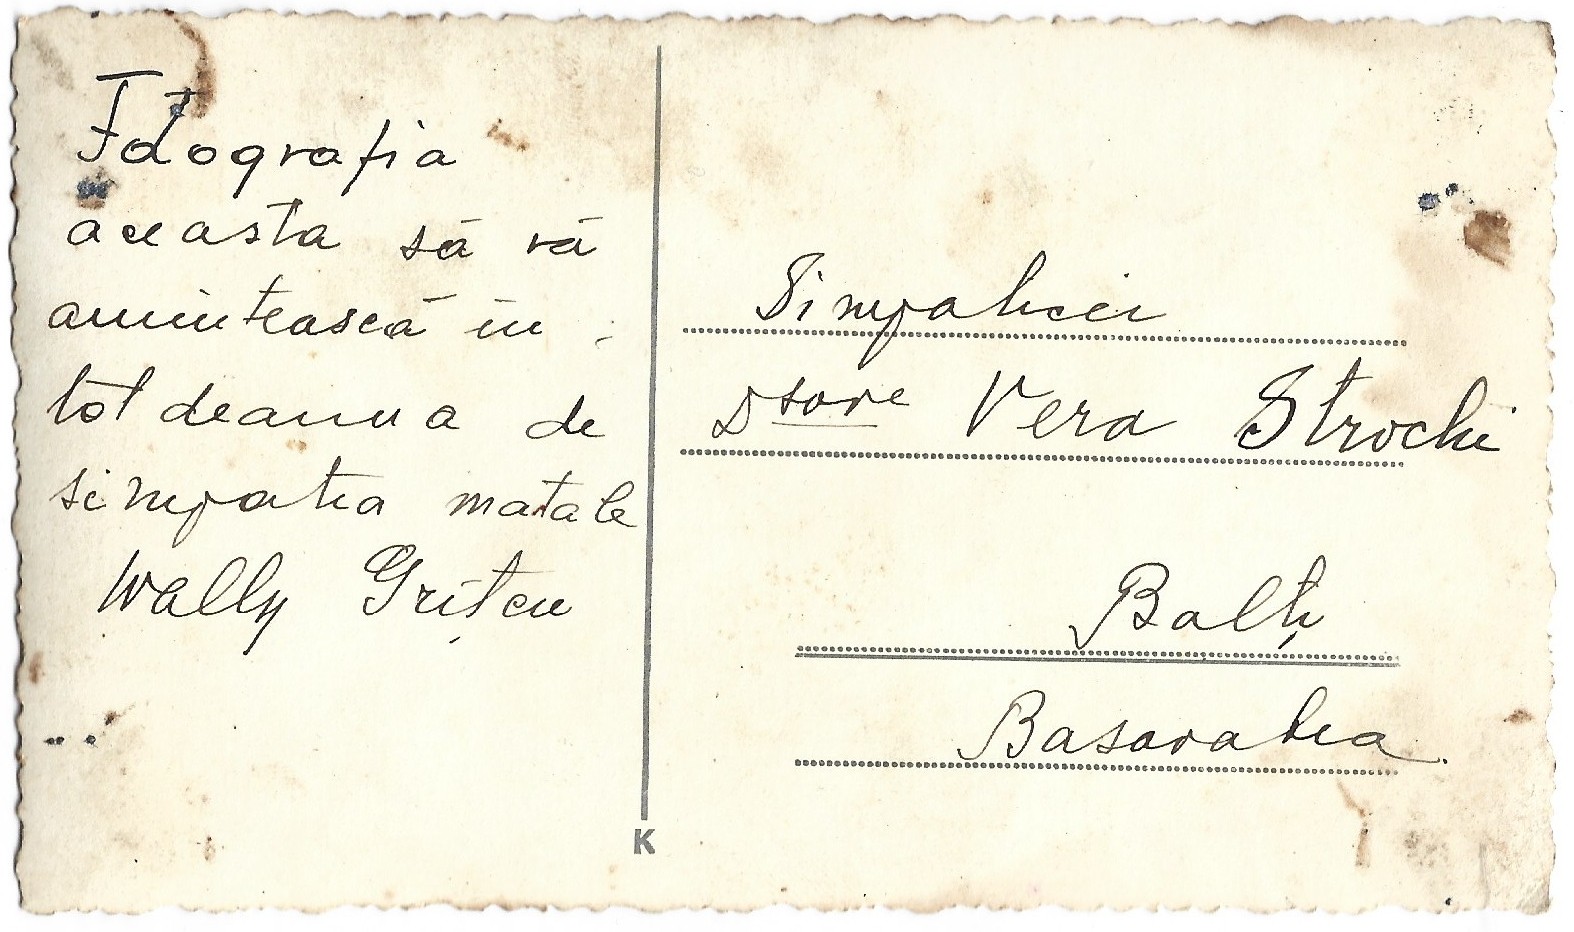 Fotografia
aceasta să vă
amintească în
totdeauna de
simpatia matale
Wally Grițcu
K
Simpaticei
Dsoare Vera Strochi
Balți
Basarabia.